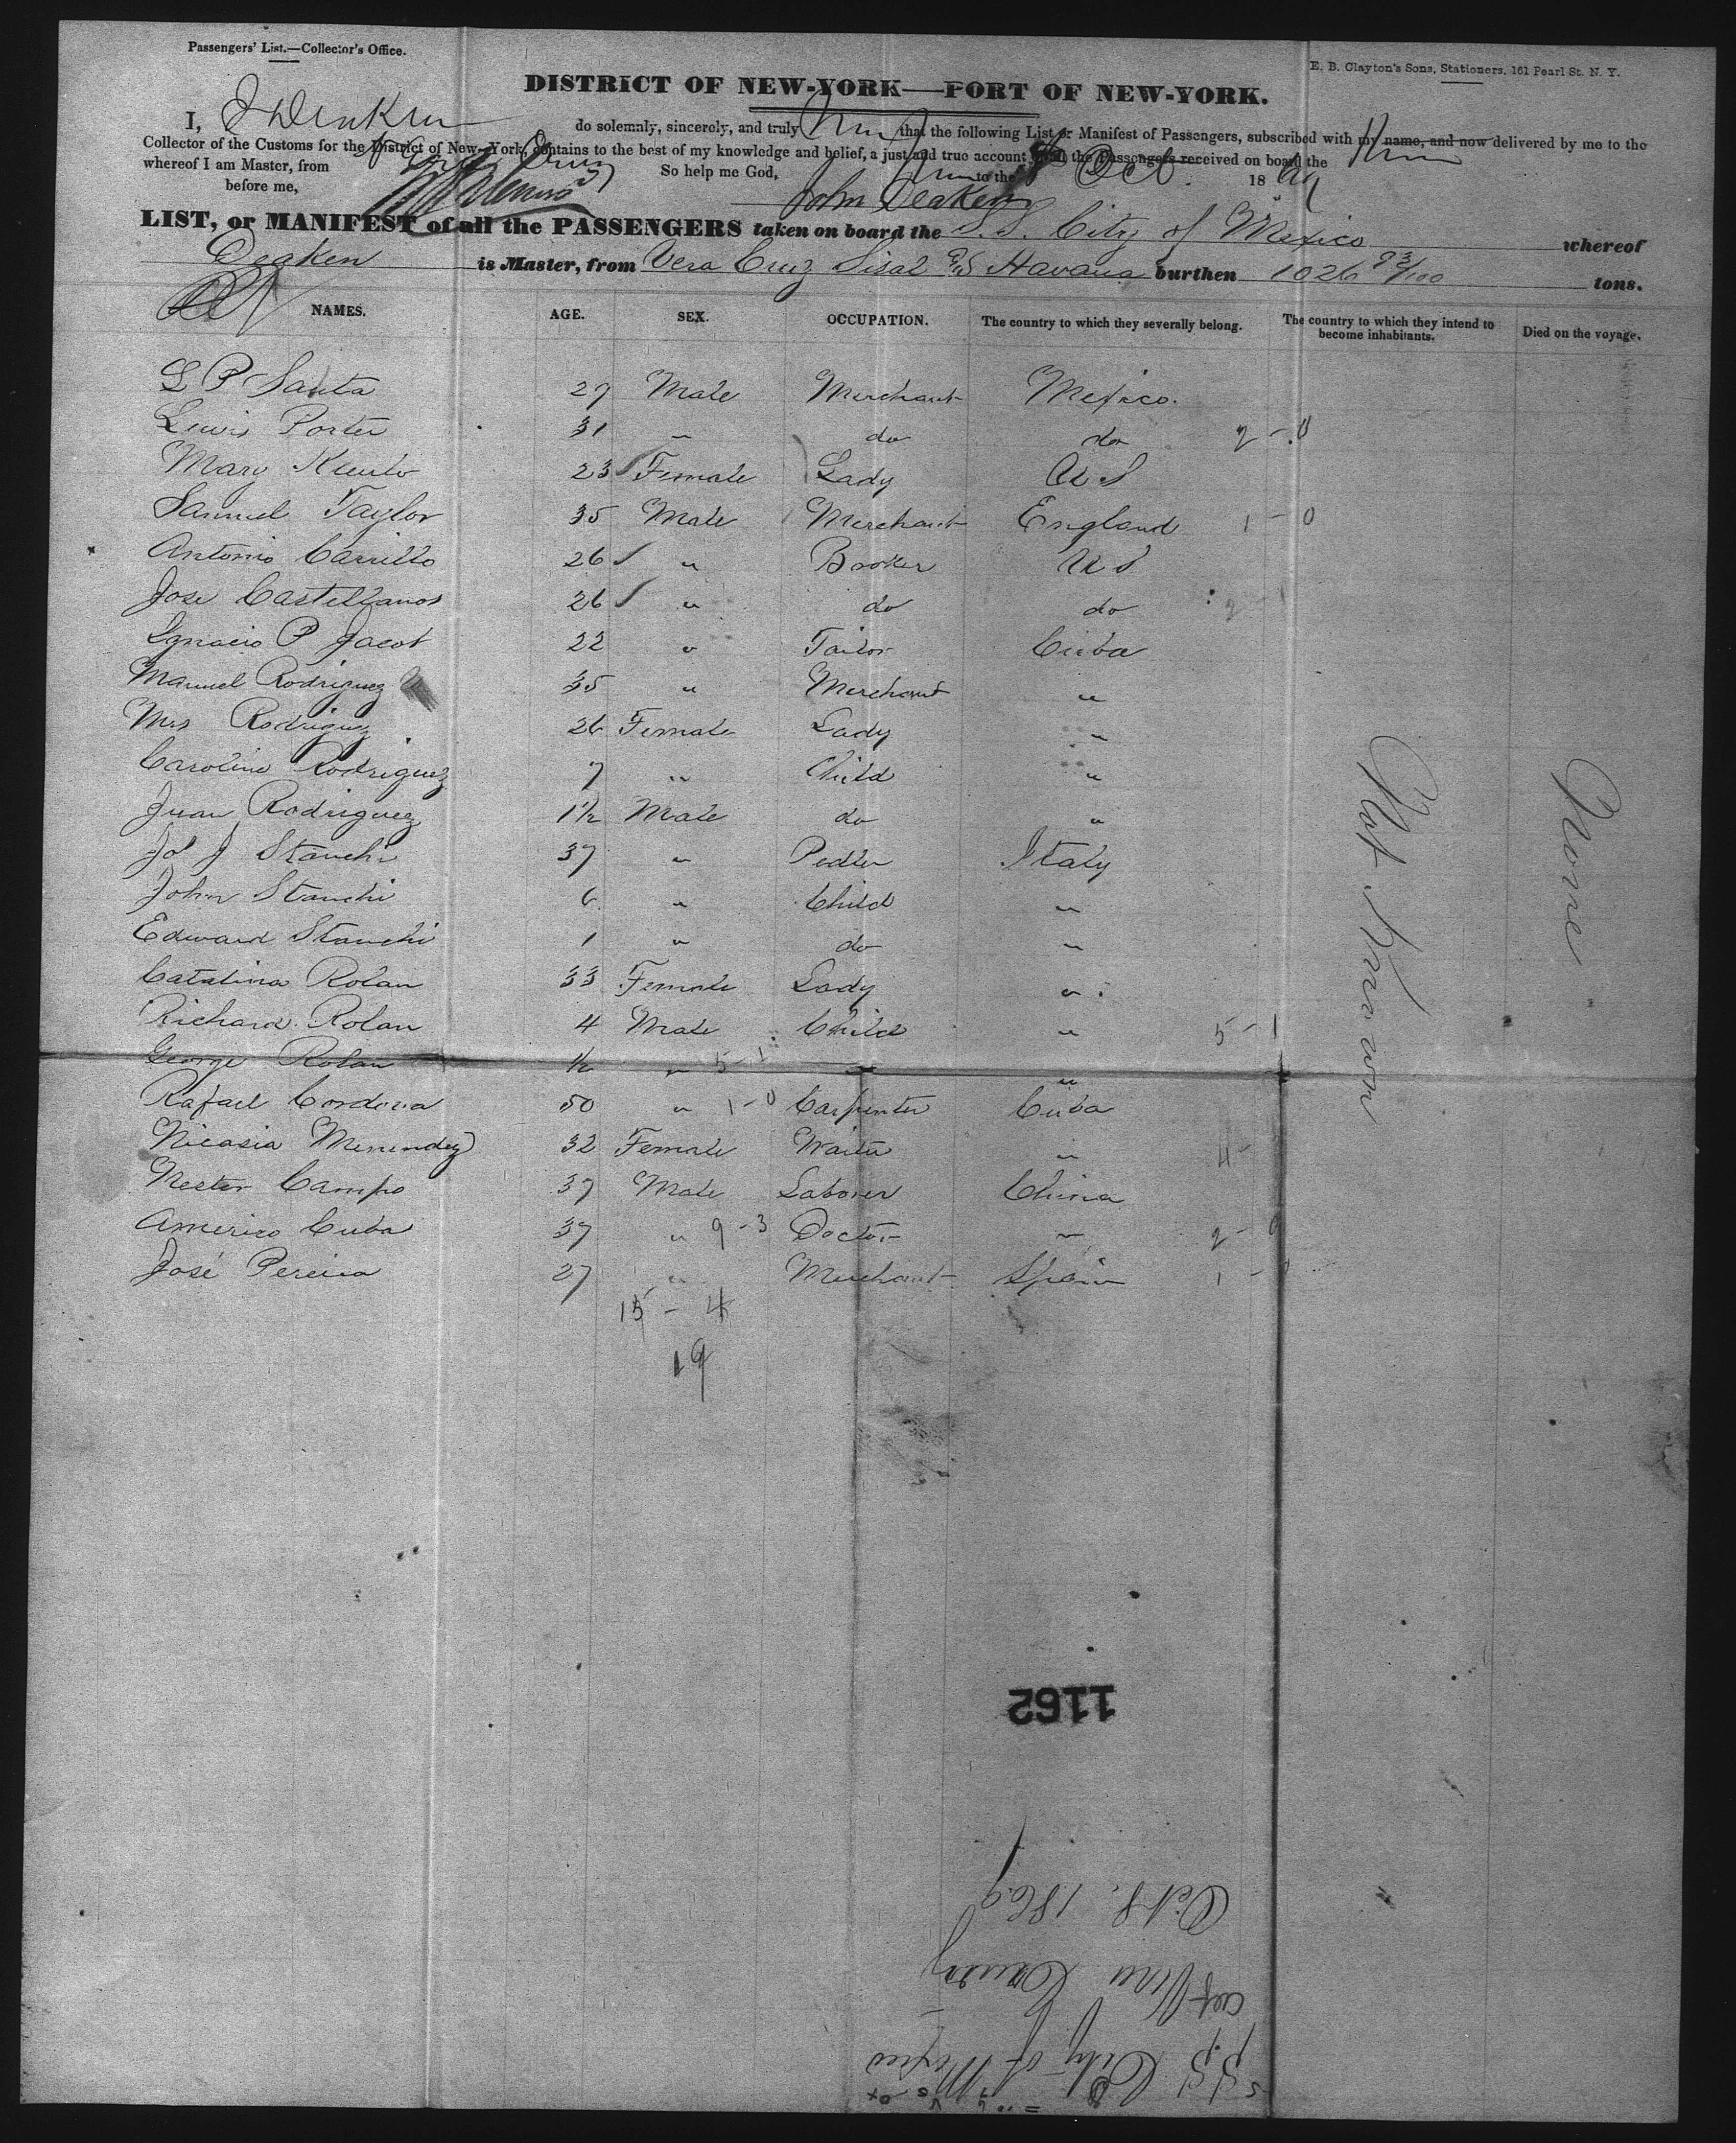 Passengers' List.—Collector's Office.
E. B. Clayton's Sons, Stationers, 161 Pearl St. N. Y.
DISTRICT OF NEW-YORK—PORT OF NEW-YORK.
I, J Deaken do solemnly, sincerely, and truly that the following List or Manifest of Passengers, subscribed with my name, and now delivered by me to the
Collector of the Customs for the District of New-York, contains to the best of my knowledge and belief, a just and true account of all the Passengers received on board the
whereof I am Master, from Vera Cruz to the
So help me God, 8 Oct 1869
before me, John Deaken
LIST, or MANIFEST of all the PASSENGERS taken on board the S.S. City of Mexico whereof
Deaken is Master, from Vera Cruz Sisal & Havana burthen 1026 93/100 tons.
NAMES. AGE. SEX. OCCUPATION. The country to which they severally belong. The country to which they intend to become inhabitants. Died on the voyage.
L P Santa 27 Male Merchant Mexico.
Lewis Porter 31 " do do 2 - 0
Mary 23 Female Lady U S
Samuel Taylor 35 Male Merchant England 1 - 0
Antonio Carrillo 26 " U S
Jose Castellanos 26 " do do 2 - 1
Ignacio P Jacot 22 " Tailor Cuba
Manuel Rodriguez 35 " Merchant "
Mrs Rodriguez 26 Female Lady "
Caroline Rodriguez 7 " Child "
Juan Rodriguez 1½ Male do "
Jos J Stanchi 37 " Pedler Italy
John Stanchi 6 " Child "
Edward Stanchi 1 " do "
Catalina Rolan 33 Female Lady "
Richard Rolan 4 Male Child " 5 - 1
George Rolan ½ " 5-1 " "
Rafael Cordova 50 " 1-0 Carpenter Cuba
Nicasia Menendez 32 Female Waiter " 4-
Nester Campo 37 Male Laborer China
Americo Cuba 37 " 9-3 Doctor " 2 - 0
José Pereira 27 " Merchant Spain 1 -
15 - 4
19
Not Known
None
1162
Oct 8, 1869
Vera Cruz
S.S. City of Mexico